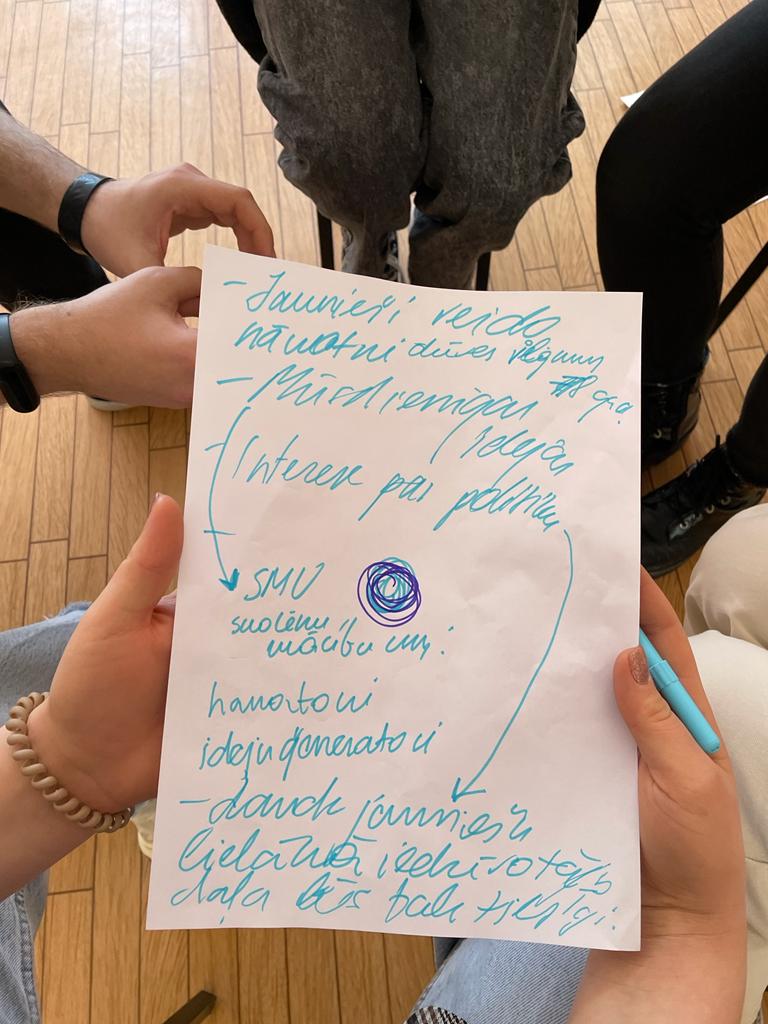 - Jaunieši veido
nākotni
- Mūsdienīgas
idejas
- Interese par politiku
SMU
skolēnu
mācību uzņ.
ideju ģeneratori
- Daudz jauniešu
lielākā iedzīvotāju
daļa būs balt tiesīgi.